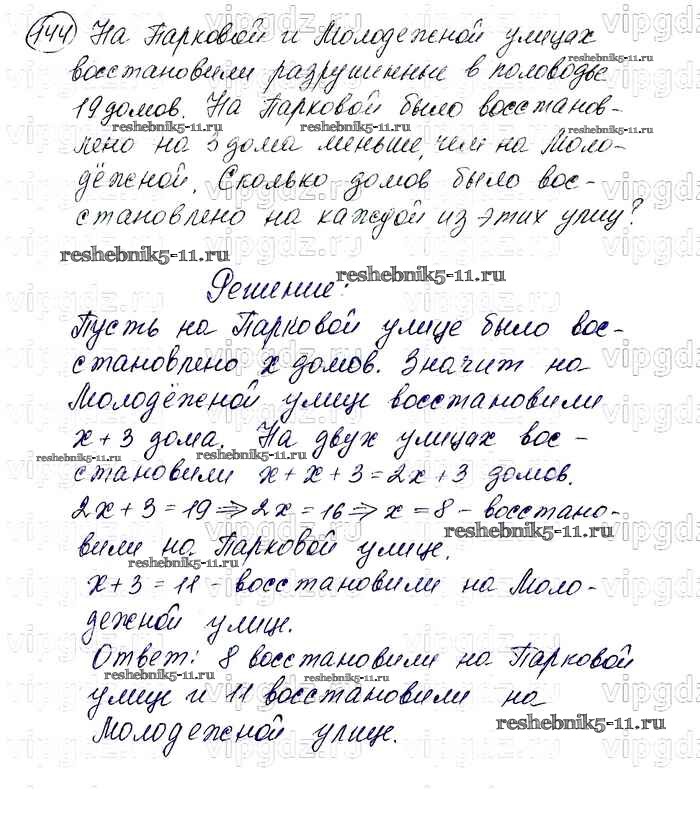 144 На Парковой и Молодежной улицах
восстановили разрушенные в половодье
19 домов. На Парковой было восстанов-
лено на 3 дома меньше, чем на Моло-
дёжной. Сколько домов было вос-
становлено на каждой из этих улиц?
Решение:
Пусть на Парковой улице было вос-
становлено x домов. Значит на
Молодёжной улице восстановили
x+3 дома. На двух улицах вос-
становили x+x+3=2x+3 домов.
2x+3=19⇒2x=16⇒x=8 - восстано-
вили на Парковой улице.
x+3=11 - восстановили на Моло-
дежной улице.
Ответ: 8 восстановили на Парковой
улице и 11 восстановили на
Молодежной улице.
vipgdz.ru
reshebnik5-11.ru